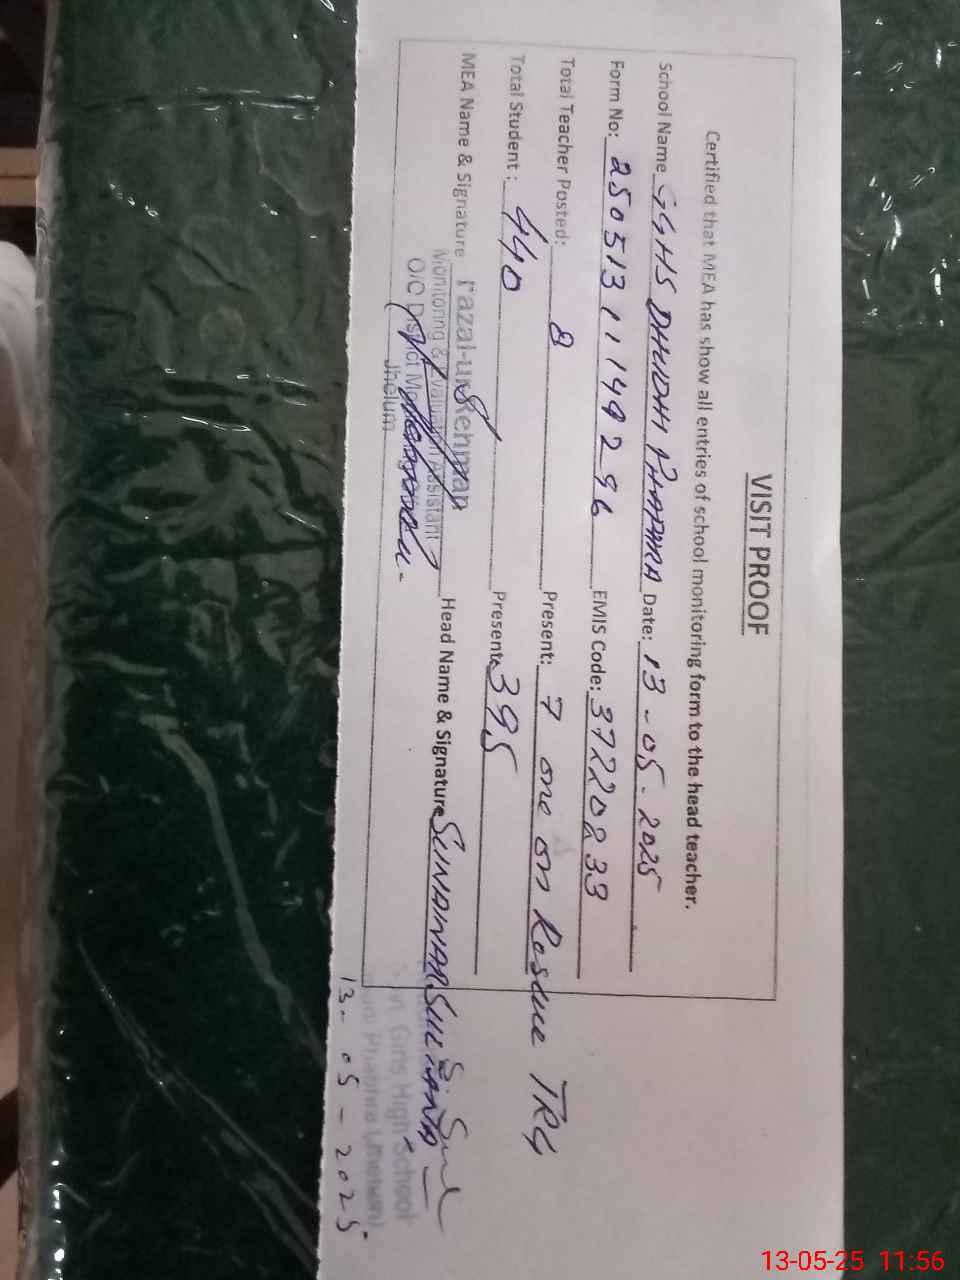 VISIT PROOF
Certified that MEA has show all entries of school monitoring form to the head teacher.
School Name GGHS DHUDHI PHAPHRA Date: 13-05-2025
Form No: 250513111492 EMIS Code: 37220233
Total Teacher Posted: 8 Present: 7 one on Rescue TRG
Total Student: 440 Present: 395
MEA Name & Signature Fazal-ur-Rehman Head Name & Signature
Monitoring & Evaluation Assistant
O/C District
Jhelum
Girls High School
13-05-2025
13-05-25 11:56